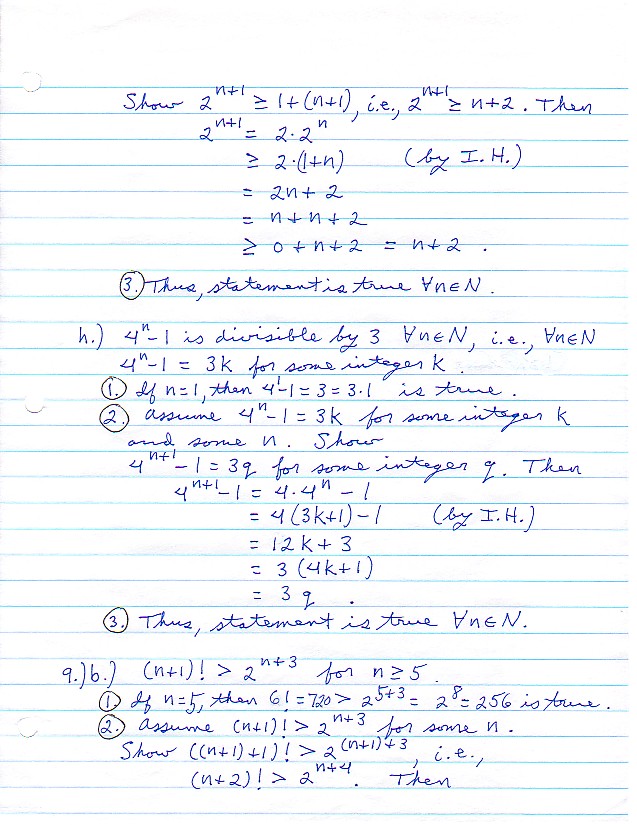 Show 2^{n+1} ≥ 1+(n+1), i.e., 2^{n+1} ≥ n+2. Then
2^{n+1} = 2·2^n
≥ 2·(1+n) (by I.H.)
= 2n+2
= n+n+2
≥ 0+n+2 = n+2.
3.) Thus, statement is true ∀n∈N.
h.) 4^n-1 is divisible by 3 ∀n∈N, i.e., ∀n∈N
4^n-1 = 3k for some integer k.
1.) If n=1, then 4^1-1=3=3·1 is true.
2.) Assume 4^n-1=3k for some integer k
and some n. Show
4^{n+1}-1=3q for some integer q. Then
4^{n+1}-1 = 4·4^n-1
= 4(3k+1)-1 (by I.H.)
= 12k+3
= 3(4k+1)
= 3q.
3.) Thus, statement is true ∀n∈N.
9.)b.) (n+1)! > 2^{n+3} for n≥5.
1.) If n=5, then 6!=720 > 2^{5+3} = 2^8 = 256 is true.
2.) Assume (n+1)! > 2^{n+3} for some n.
Show ((n+1)+1)! > 2^{(n+1)+3}, i.e.,
(n+2)! > 2^{n+4}. Then